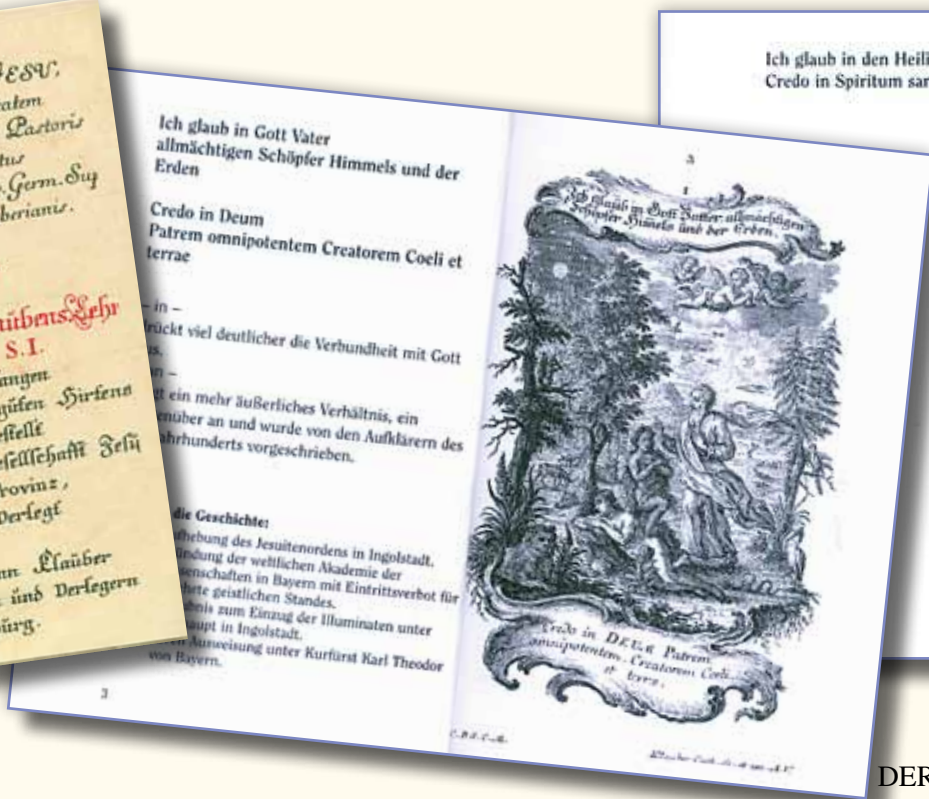 JESU,
Pastoris
Germ. Sup
S.I.
angen
guten Hirtens
Gesellschafft Jesu
Provinz,
Verlegt
Claüber
und Verlegern
Ich glaub in Gott Vater
allmächtigen Schöpfer Himmels und der
Erden
Credo in Deum
Patrem omnipotentem Creatorem Coeli et
terrae
– in –
rückt viel deutlicher die Verbundheit mit Gott
ein mehr äußerliches Verhältnis, ein
enüber an und wurde von den Aufklärern des
ahrhunderts vorgeschrieben.
die Geschichte:
fhebung des Jesuitenordens in Ingolstadt.
ündung der weltlichen Akademie der
senschaften in Bayern mit Eintrittsverbot für
hrte geistlichen Standes.
bnis zum Einzug der Illuminaten unter
haupt in Ingolstadt.
Ausweisung unter Kurfürst Karl Theodor
von Bayern.
3
I
Ich glaub in Gott Vatter allmächtigen
Schöpfer Himmels und der Erden.
Credo in DEUM Patrem
omnipotentem, Creatorem Coeli
et terrae,
Ich glaub in den Heili
Credo in Spiritum san
DER